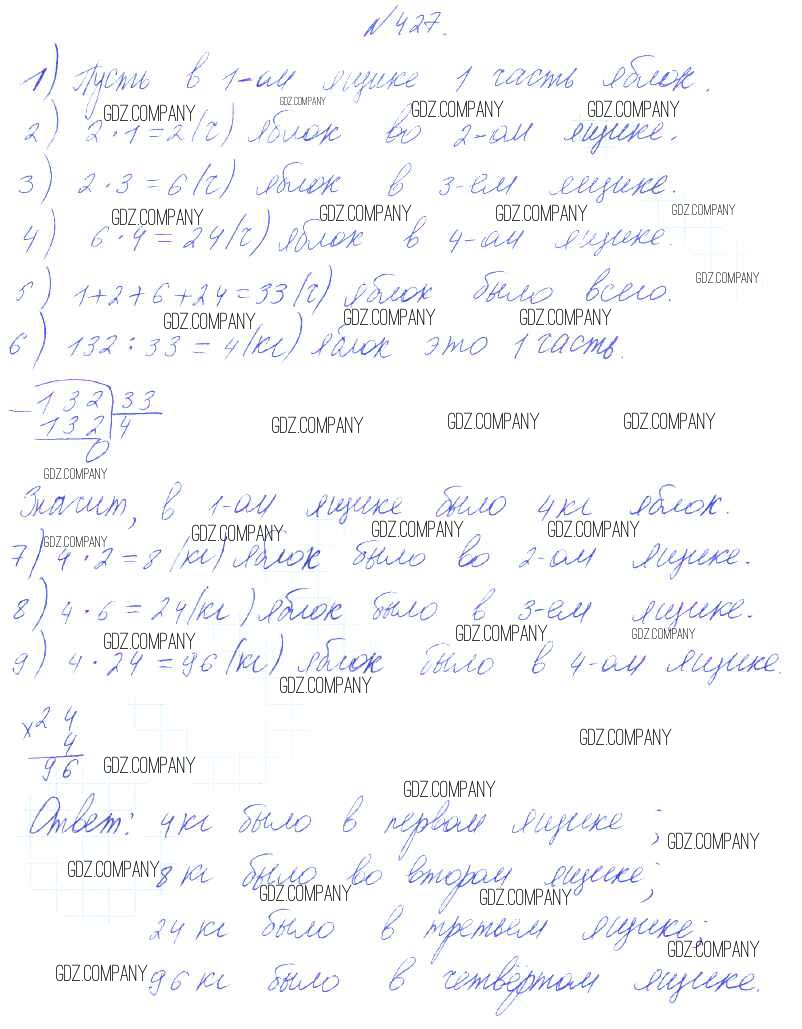 №427.
1) Пусть в 1-ом ящике 1 часть яблок.
GDZ.COMPANY GDZ.COMPANY GDZ.COMPANY GDZ.COMPANY
2) 2·1=2(ч) яблок во 2-ом ящике.
3) 2·3=6(ч) яблок в 3-ем ящике.
GDZ.COMPANY GDZ.COMPANY GDZ.COMPANY GDZ.COMPANY
4) 6·4=24(ч) яблок в 4-ом ящике.
GDZ.COMPANY
5) 1+2+6+24=33(ч) яблок было всего.
GDZ.COMPANY GDZ.COMPANY GDZ.COMPANY
6) 132:33=4(кг) яблок это 1 часть.
-132 33
132 4
0
GDZ.COMPANY GDZ.COMPANY GDZ.COMPANY
GDZ.COMPANY
Значит, в 1-ом ящике было 4кг яблок.
GDZ.COMPANY GDZ.COMPANY GDZ.COMPANY GDZ.COMPANY
7) 4·2=8(кг) яблок было во 2-ом ящике.
8) 4·6=24(кг) яблок было в 3-ем ящике.
GDZ.COMPANY GDZ.COMPANY GDZ.COMPANY
9) 4·24=96(кг) яблок было в 4-ом ящике.
GDZ.COMPANY
x24
4
96
GDZ.COMPANY GDZ.COMPANY
GDZ.COMPANY
Ответ: 4кг было в первом ящике;
GDZ.COMPANY
8кг было во втором ящике;
GDZ.COMPANY GDZ.COMPANY GDZ.COMPANY
24кг было в третьем ящике;
GDZ.COMPANY
96кг было в четвёртом ящике.
GDZ.COMPANY